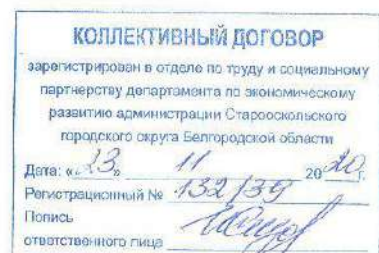 КОЛЛЕКТИВНЫЙ ДОГОВОР
зарегистрирован в отделе по труду и социальному
партнерству департамента по экономическому
развитию администрации Старооскольского
городского округа Белгородской области
Дата: «23» 11 2020г.
Регистрационный № 132/39
Попись
ответственного лица